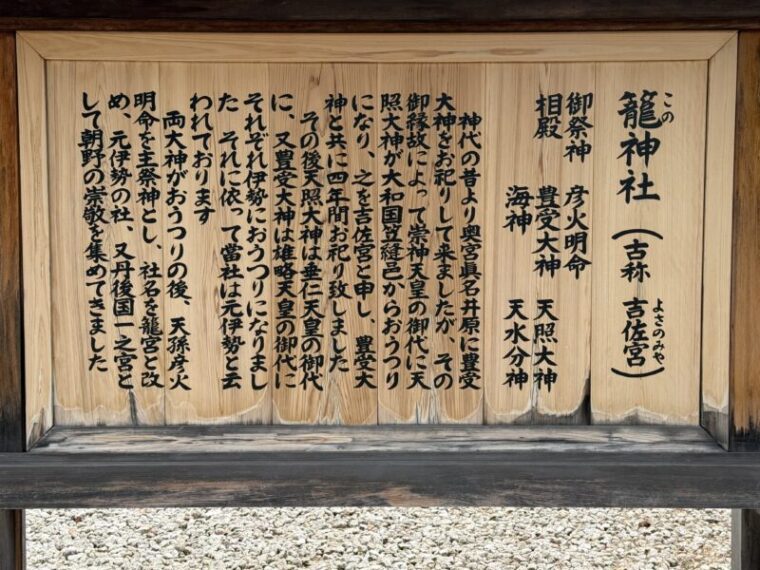 籠神社（古称 吉佐宮）
この
よさのみや
御祭神 彦火明命
相殿 豊受大神 天照大神
海神 天水分神
神代の昔より奥宮眞名井原に豊受
大神をお祀りして来ましたが その
御縁故によって崇神天皇の御代に天
照大神が大和国笠縫邑からおうつり
になり、之を吉佐宮と申し、豊受大
神と共に四年間お祀り致しました
その後天照大神は垂仁天皇の御代
に、又豊受大神は雄略天皇の御代に
それぞれ伊勢におうつりになりまし
た それに依って當社は元伊勢と云
われております
両大神がおうつりの後、天孫彦火
明命を主祭神とし、社名を籠宮と改
め、元伊勢の社、又丹後国一之宮と
して朝野の崇敬を集めてきました